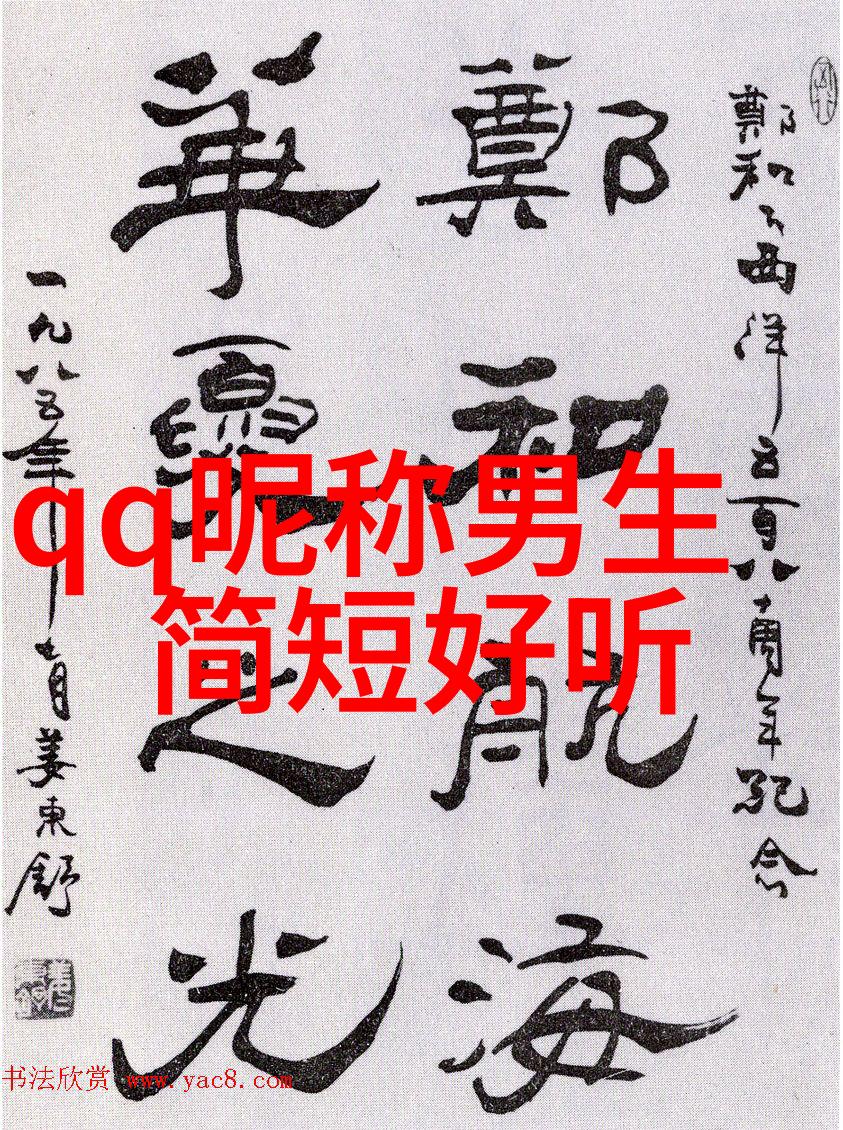 鄭和下西洋五百八十周年紀念
鄭和航海
華夏之光
一九八五年 月姜東舒
qq昵称男生
简短好听
书法欣赏 www.yac8.com